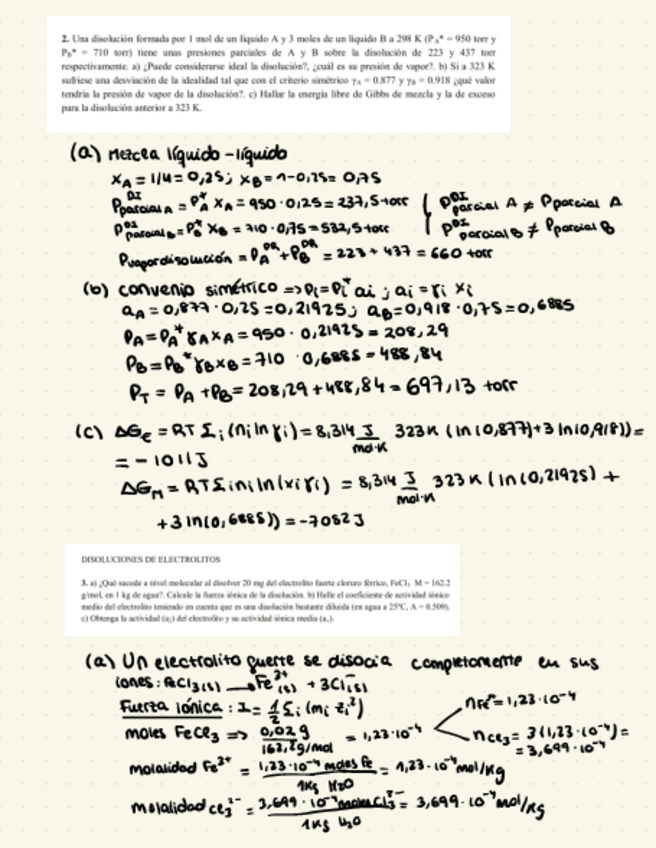 2. Una disolución formada por 1 mol de un líquido A y 3 moles de un líquido B a 298 K (P_A* = 950 torr y
P_B* = 710 torr) tiene unas presiones parciales de A y B sobre la disolución de 223 y 437 torr
respectivamente. a) ¿Puede considerarse ideal la disolución?, ¿cuál es su presión de vapor?. b) Si a 323 K
sufriese una desviación de la idealidad tal que con el criterio simétrico γ_A = 0.877 y γ_B = 0.918 ¿qué valor
tendría la presión de vapor de la disolución?. c) Hallar la energía libre de Gibbs de mezcla y la de exceso
para la disolución anterior a 323 K.
(a) Mezcla líquido-líquido
X_A = 1/4 = 0,25; X_B = 1-0,25 = 0,75
P^DI parcial A = P_A^* X_A = 950·0,25 = 237,5 torr | P^DI parcial A ≠ P parcial A
P^DI parcial B = P_B^* X_B = 710·0,75 = 532,5 torr | P^DI parcial B ≠ P parcial B
P vapor disolución = P_A^DR + P_B^DR = 223 + 437 = 660 torr
(b) convenio simétrico => P_i = P_i^* a_i ; a_i = γ_i x_i
a_A = 0,877·0,25 = 0,21925; a_B = 0,918·0,75 = 0,6885
P_A = P_A^* γ_A X_A = 950·0,21925 = 208,29
P_B = P_B^* γ_B X_B = 710·0,6885 = 488,84
P_T = P_A + P_B = 208,29 + 488,84 = 697,13 torr
(c) ΔG_E = RT Σ_i (n_i ln γ_i) = 8,314 J/mol·K 323K (ln(0,877)+3 ln(0,918)) =
= -1011 J
ΔG_M = RT Σ_i n_i ln(x_i γ_i) = 8,314 J/mol·K 323K (ln(0,21925) +
+3 ln(0,6885)) = -7052 J
DISOLUCIONES DE ELECTROLITOS
3. a) ¿Qué sucede a nivel molecular al disolver 20 mg del electrolito fuerte cloruro férrico, FeCl_3 M = 162.2
g/mol, en 1 kg de agua?. Calcule la fuerza iónica de la disolución. b) Halle el coeficiente de actividad iónico
medio del electrolito teniendo en cuenta que es una disolución bastante diluida (en agua a 25ºC, A = 0.509).
c) Obtenga la actividad (a_i) del electrolito y su actividad iónica media (a_±).
(a) Un electrolito fuerte se disocia completamente en sus
iones: FeCl_3(s) → Fe^3+_(s) + 3Cl^-_(s)
Fuerza iónica : I = 1/2 Σ_i (m_i z_i^2)
moles FeCl_3 => 0,02 g / 162,2 g/mol = 1,23·10^-4 < n_Fe^3+ = 1,23·10^-4
n_Cl_3 = 3(1,23·10^-4) =
= 3,699·10^-4
molalidad Fe^3+ = 1,23·10^-4 moles Fe / 1Kg H2O = 1,23·10^-4 mol/Kg
molalidad Cl_3^- = 3,699·10^-4 moles Cl_3^- / 1Kg H2O = 3,699·10^-4 mol/Kg